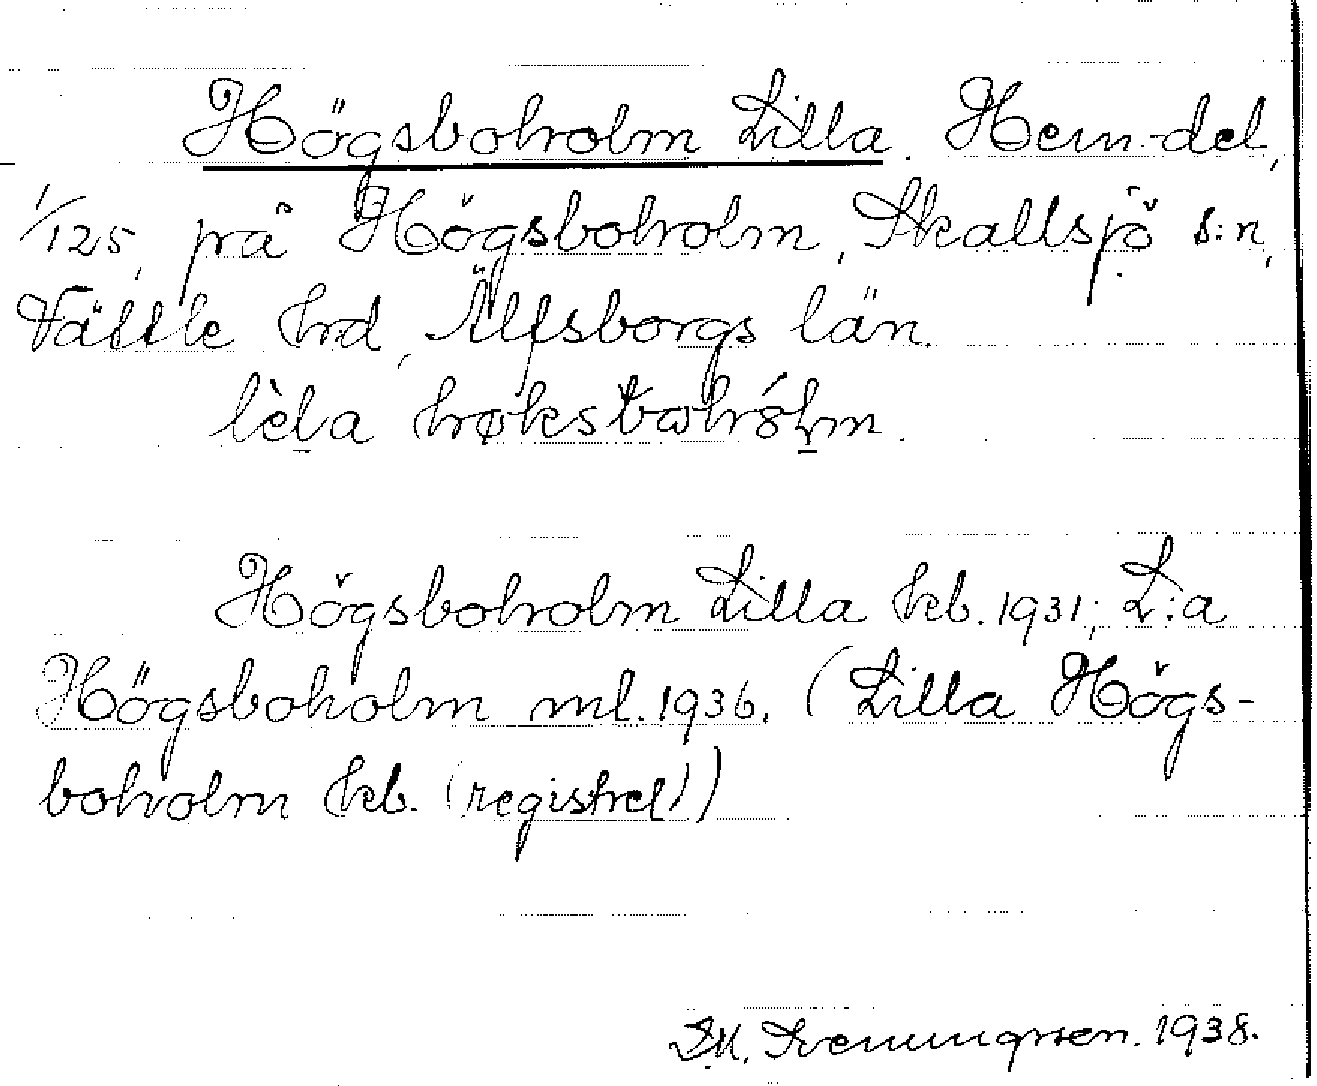 Högsboholm Lilla. Hem.-del,
1/125, på Högsboholm, Skallsjö s:n,
Vättle hrd, Älfsborgs län.
lèl̠a høksbohól̠m.
Högsboholm Lilla kb. 1931; L:a
Högsboholm ml. 1936. (Lilla Högs-
boholm kb. (registret))
Sveningsson. 1938.